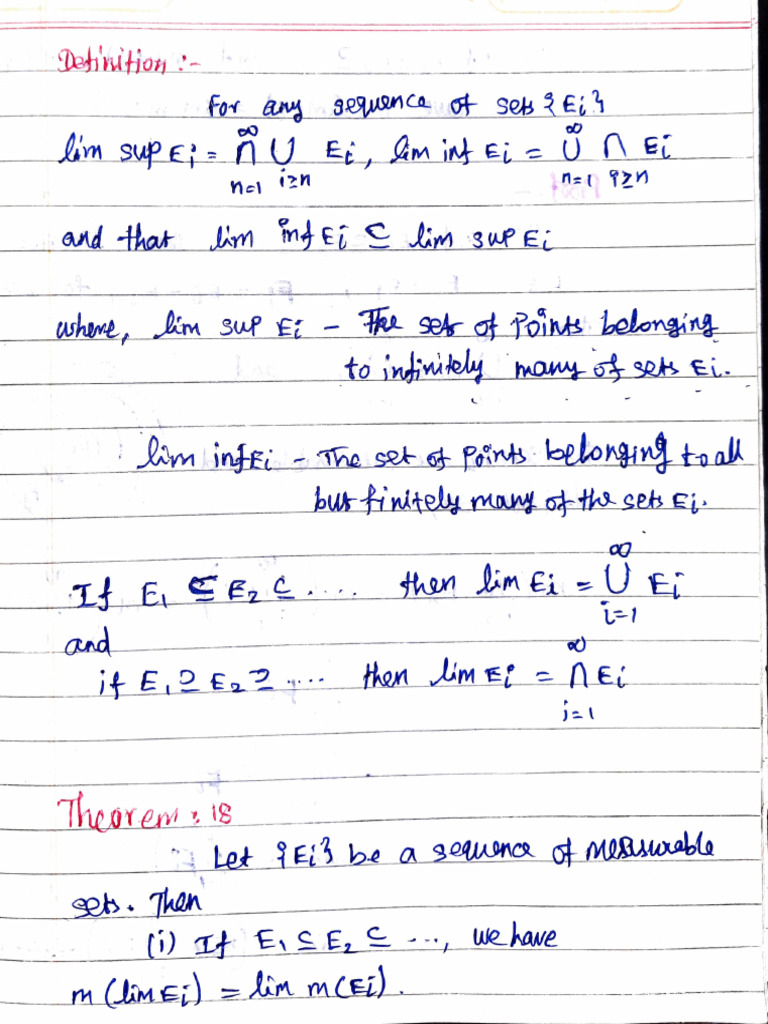 Definition :-
For any sequence of sets {Ei}
lim sup Ei = ∞⋂n=1 ⋃i≥n Ei, lim inf Ei = ∞⋃n=1 ⋂i≥n Ei
and that lim inf Ei ⊆ lim sup Ei
where, lim sup Ei - The set of Points belonging
to infinitely many of sets Ei.
lim inf Ei - The set of Points belonging to all
but finitely many of the sets Ei.
If E₁ ⊆ E₂ ⊆ .... then lim Ei = ∞⋃i=1 Ei
and
if E₁ ⊇ E₂ ⊇ .... then lim Ei = ∞⋂i=1 Ei
Theorem : 18
Let {Ei} be a sequence of measurable
sets. Then
(i) If E₁ ⊆ E₂ ⊆ ..., we have
m (lim Ei) = lim m(Ei).